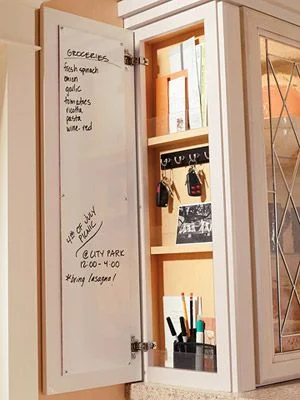 GROCERIES
fresh spinach
onion
garlic
tomatoes
ricotta
pasta
wine-red
4th OF JULY
PICNIC
@CITY PARK
12:00 - 4:00
*bring lasagna!